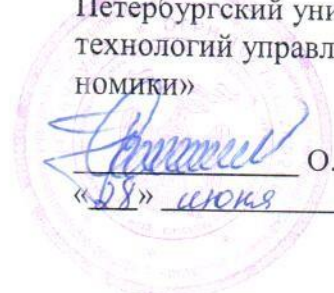 Петербургский уни
технологий управл
номики»
О.
« » июня